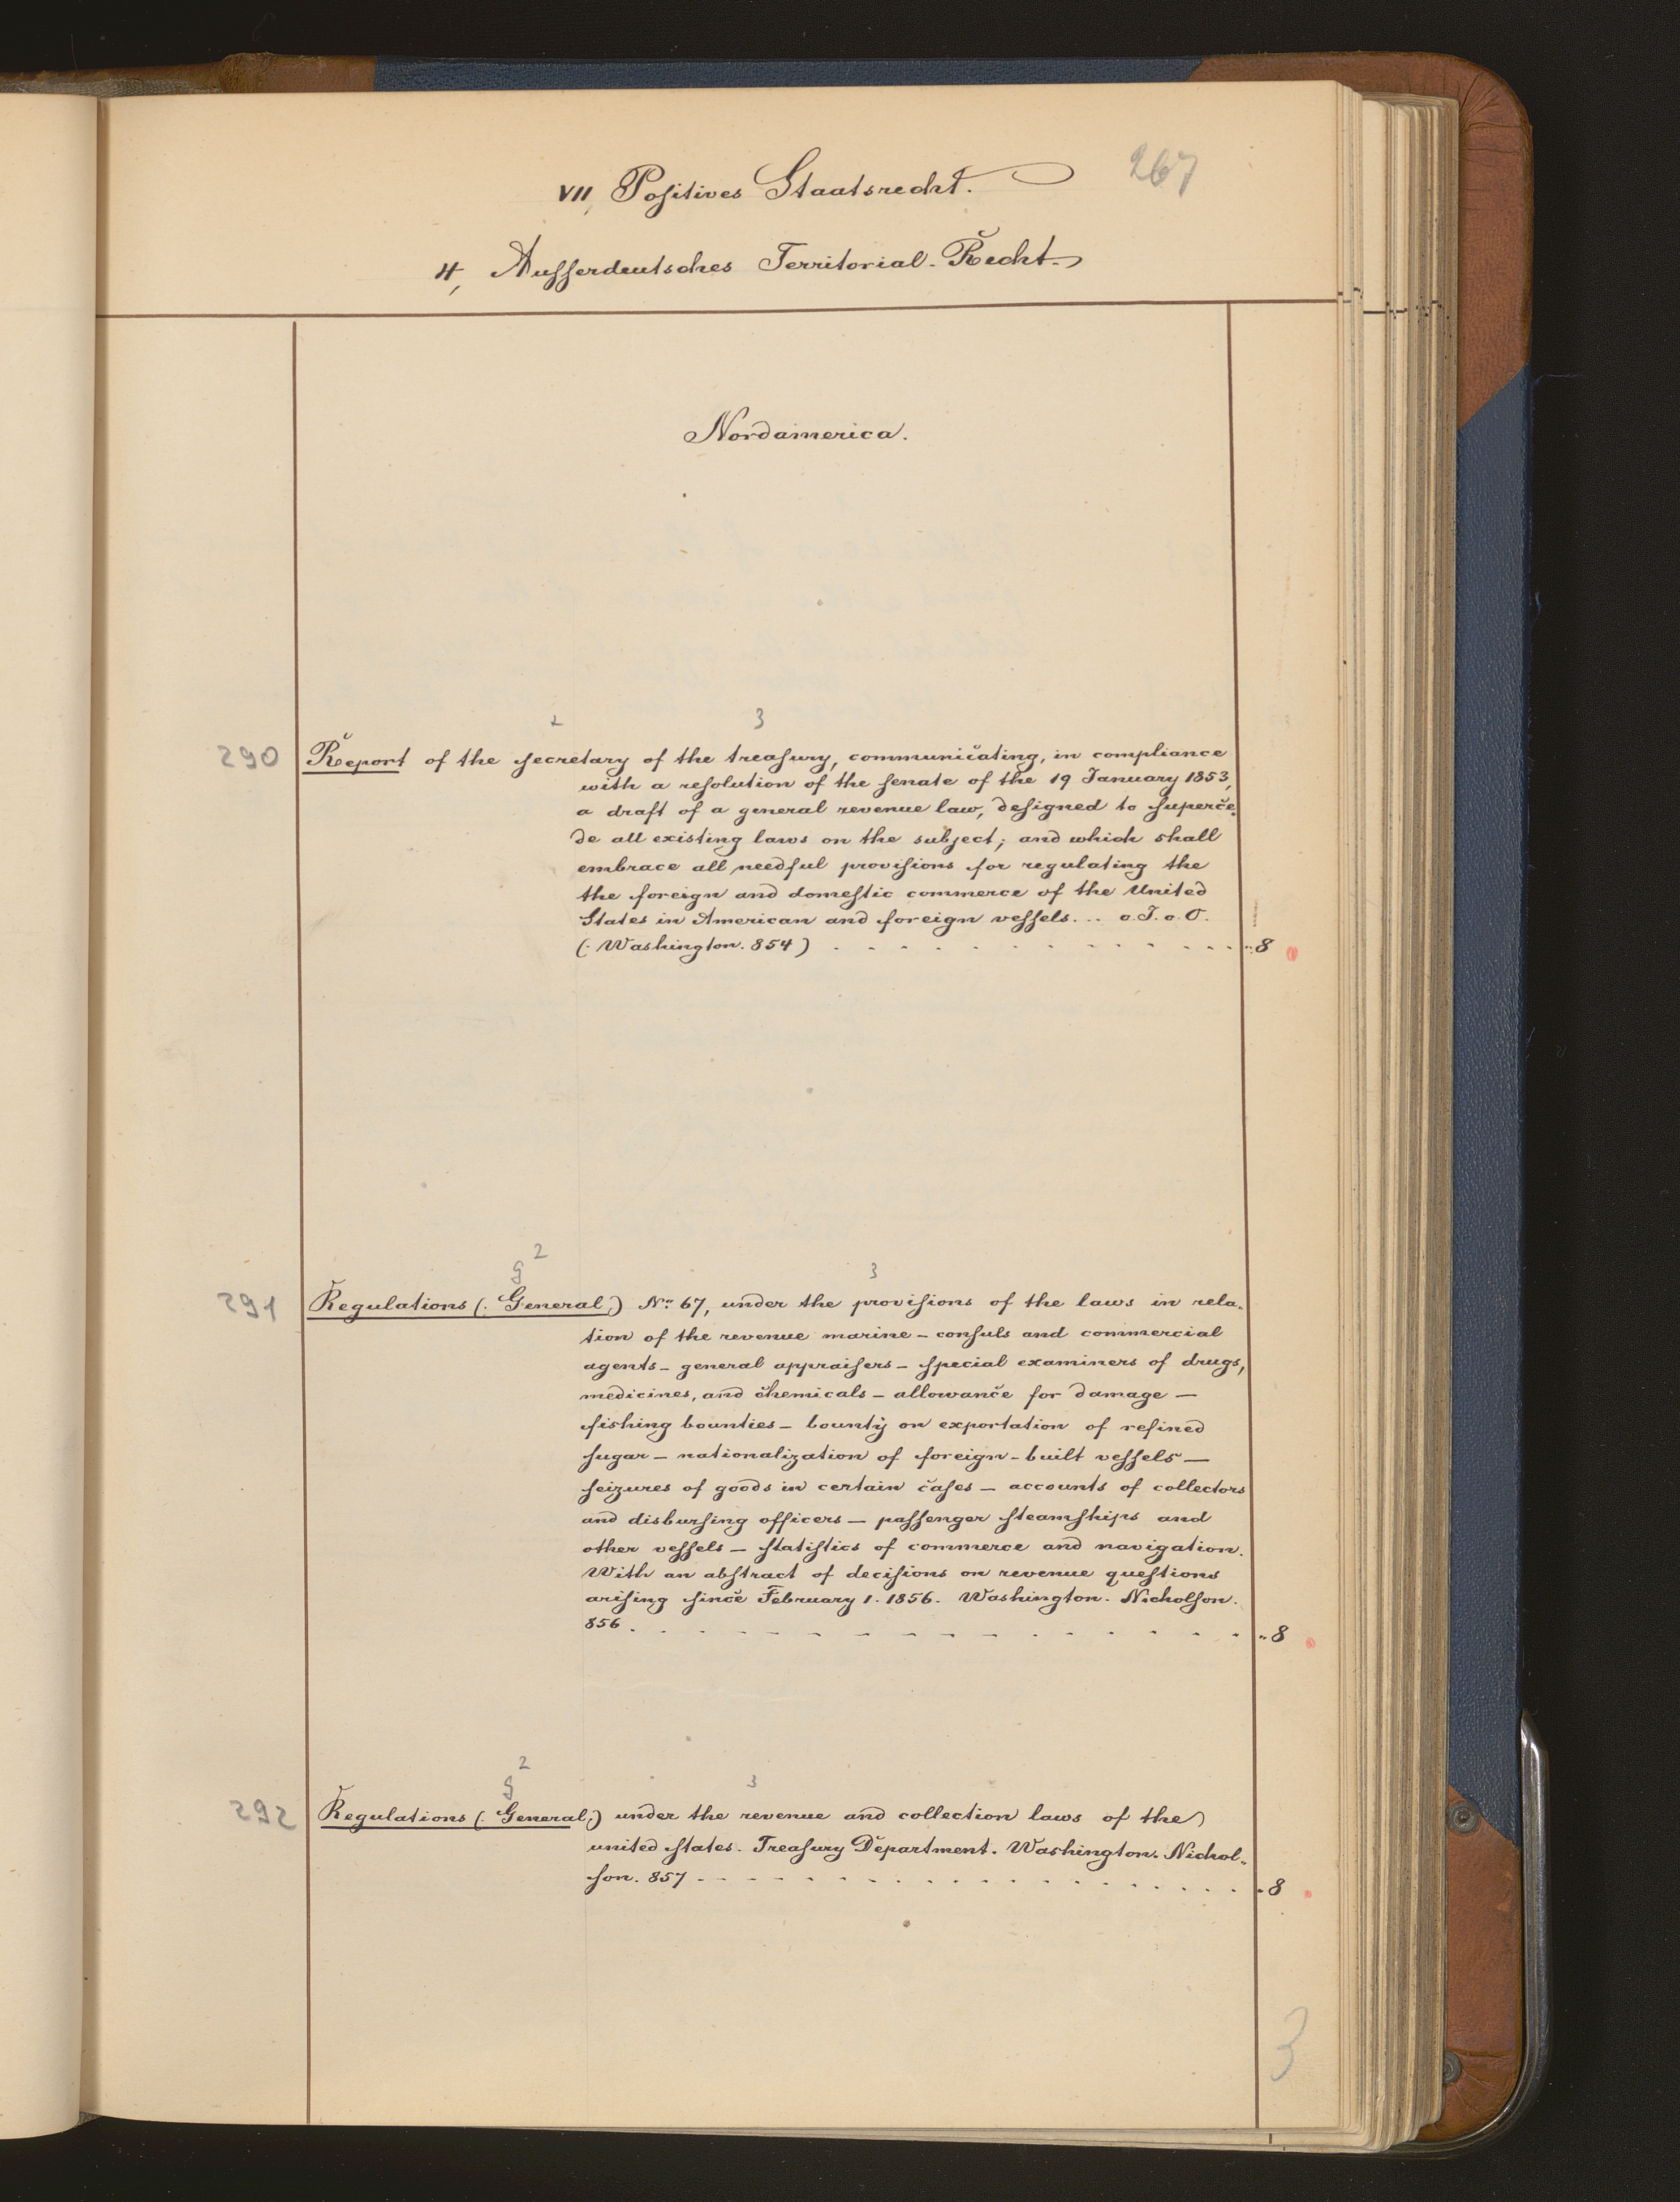 267
VII, Positives Staatsrecht.
4, Ausserdeutsches Territorial-Recht.
Nordamerica.
2 3
290 Report of the secretary of the treasury, communicating, in compliance
with a resolution of the senate of the 19 January 1853,
a draft of a general revenue law, designed to superce-
de all existing laws on the subject; and which shall
embrace all needful provisions for regulating the
the foreign and domestic commerce of the United
States in American and foreign vessels... o. J. o. O.
(: Washington. 854) . . . . . . . . . . . . „ 8
2
g 3
291 Regulations (: General:) No 67, under the provisions of the laws in rela-
tion of the revenue marine - consuls and commercial
agents - general appraisers - special examiners of drugs,
medicines, and chemicals - allowance for damage -
fishing bounties - bounty on exportation of refined
sugar - nationalization of foreign-built vessels -
seizures of goods in certain cases - accounts of collectors
and disbursing officers - passenger steamships and
other vessels - statistics of commerce and navigation.
With an abstract of decisions on revenue questions
arising since February 1. 1856. Washington. Nicholson.
856 . . . . . . . . . . . . . . . . „ 8
2
g 3
292 Regulations (: General:) under the revenue and collection laws of the
united states. Treasury Department. Washington. Nichol-
son. 857 - . . . . . . . . . . . . . . . . „ 8
3